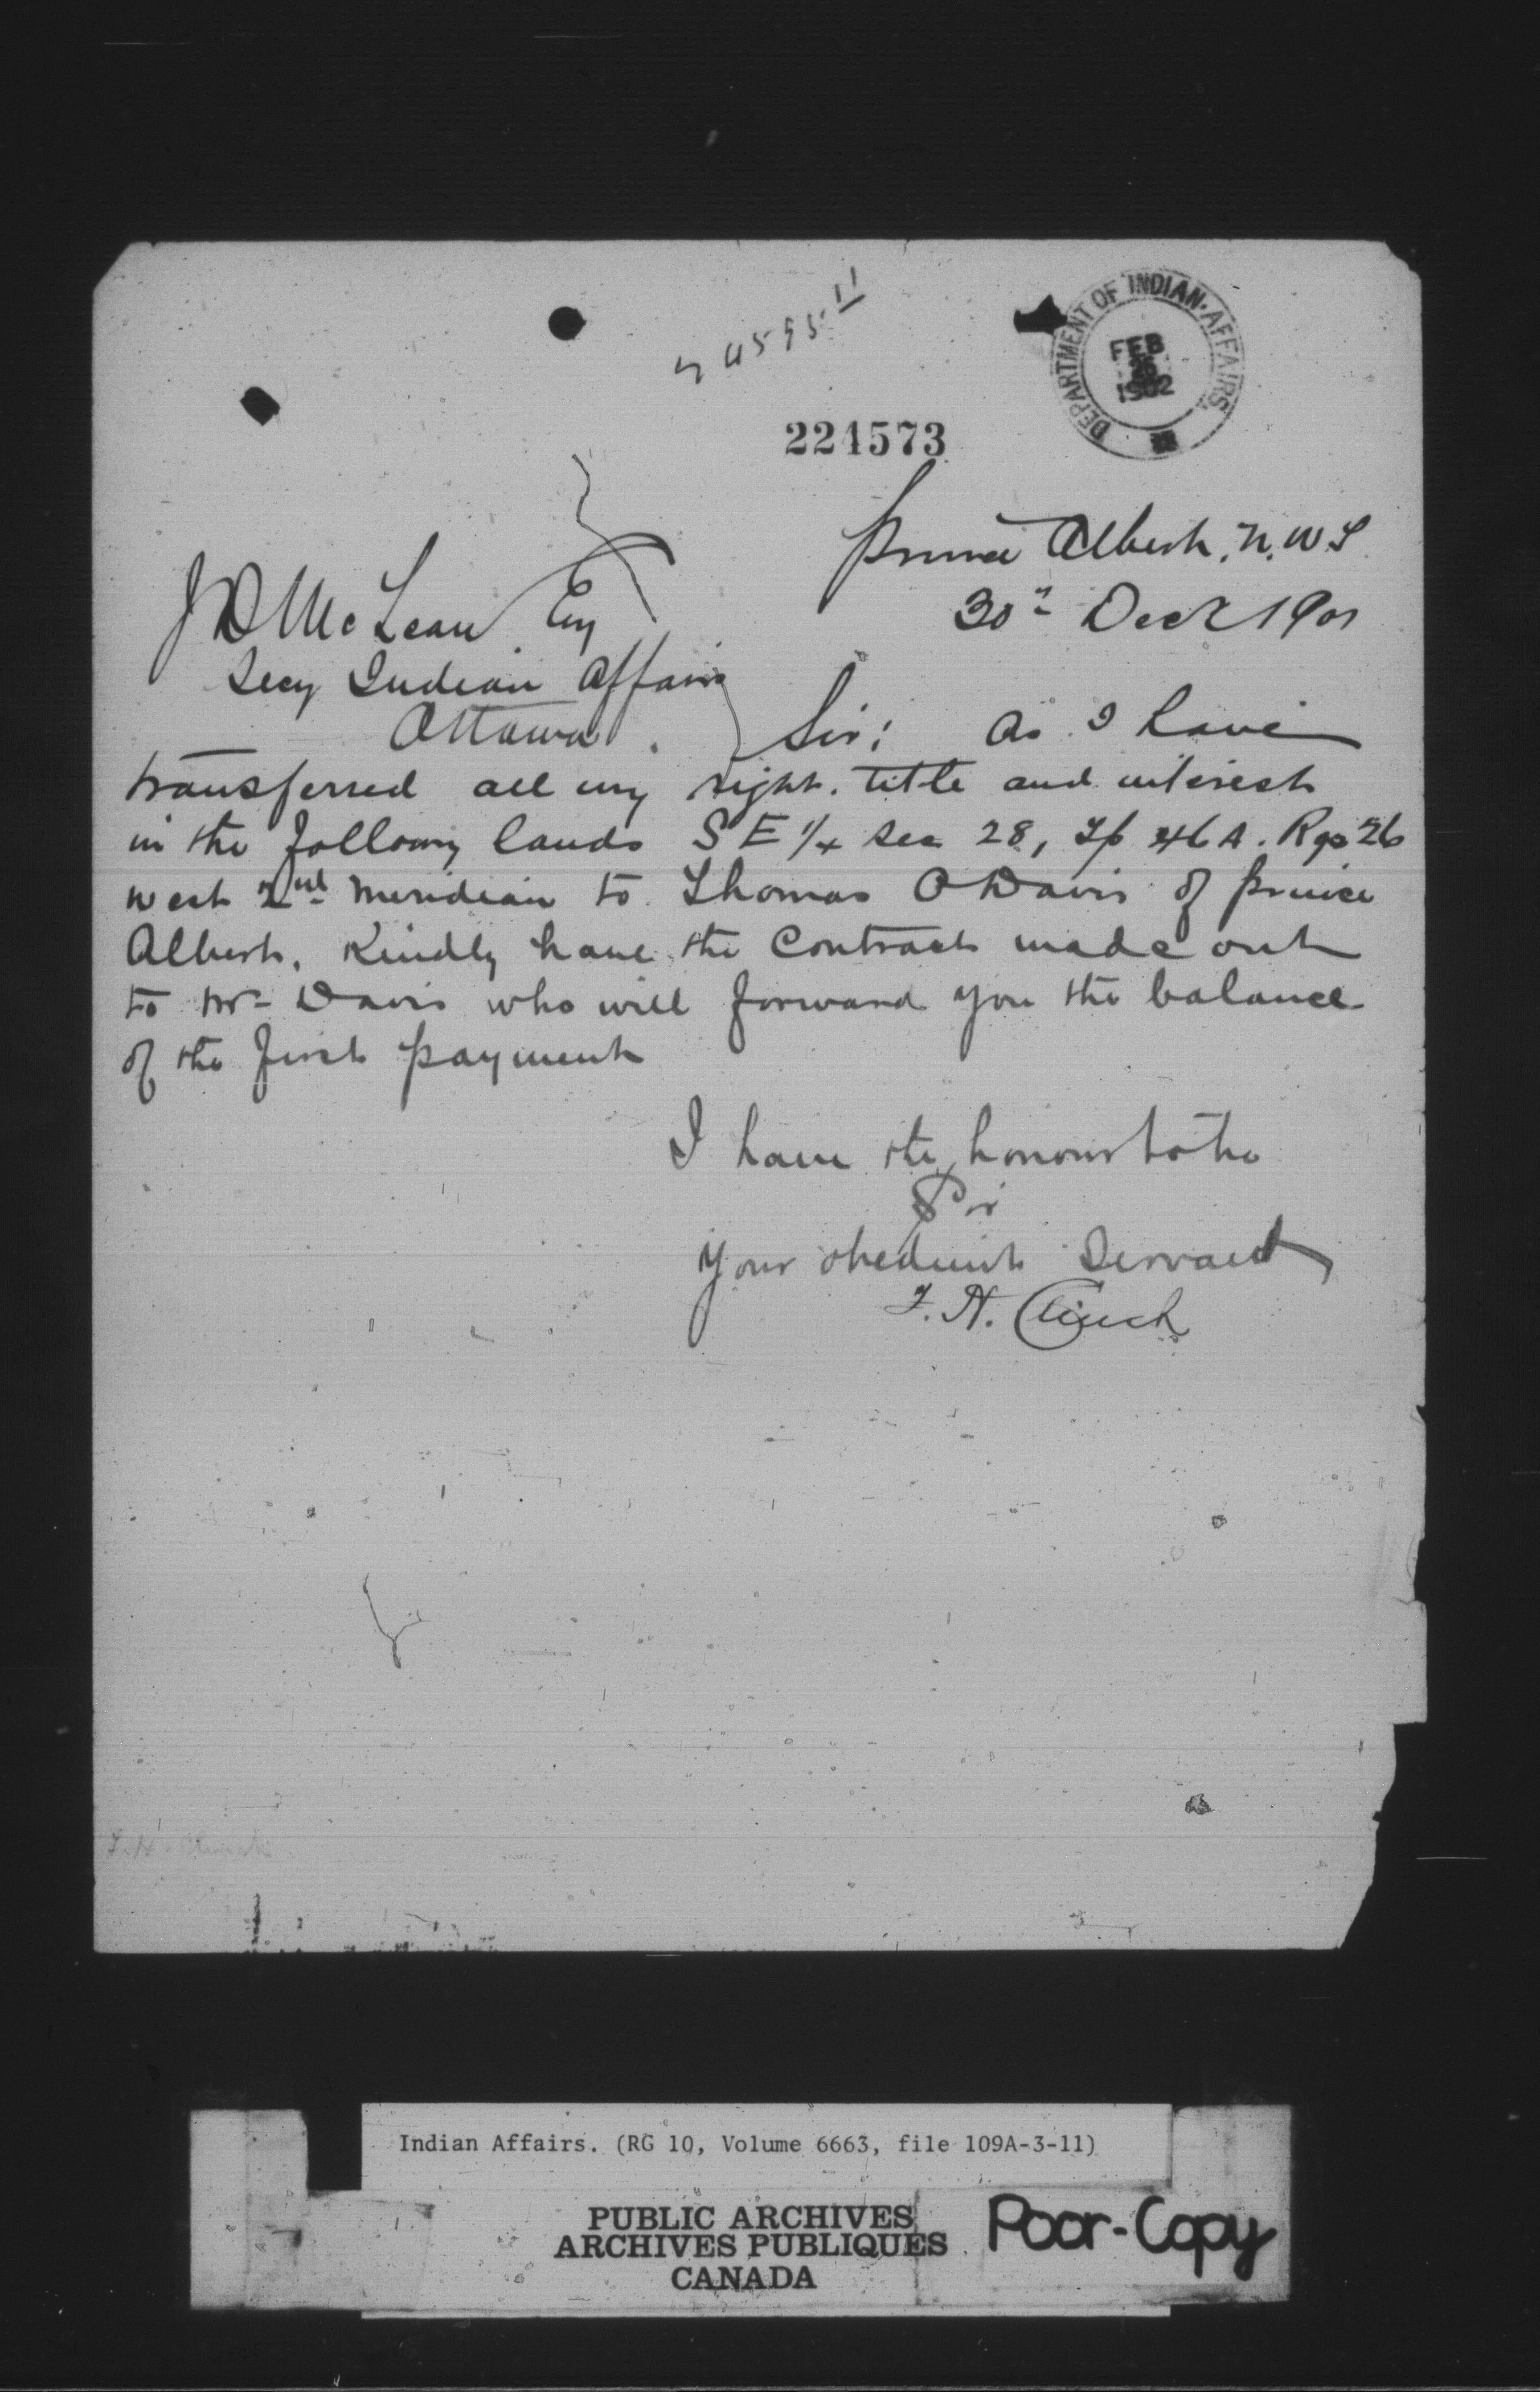 DEPARTMENT OF INDIAN AFFAIRS
FEB
26
1902
224573
Prince Albert, N.W.T.
30th Decr 1901
J D McLean Esq
Secy Indian Affairs
Ottawa.
Sir: As I have
transferred all my right. title and interest
in the followng lands S E 1/4 Sec 28, Tp 46 A. Rge 26
west 2nd Meridian to Thomas O Davis of Prince
Albert. Kindly have the Contract made out
to Mr Davis who will forward you the balance
of the first payment
I have the honour to be
Sir
Your obedient Servant
F. H. Clinch
Indian Affairs. (RG 10, Volume 6663, file 109A-3-11)
PUBLIC ARCHIVES
ARCHIVES PUBLIQUES
CANADA
Poor-Copy